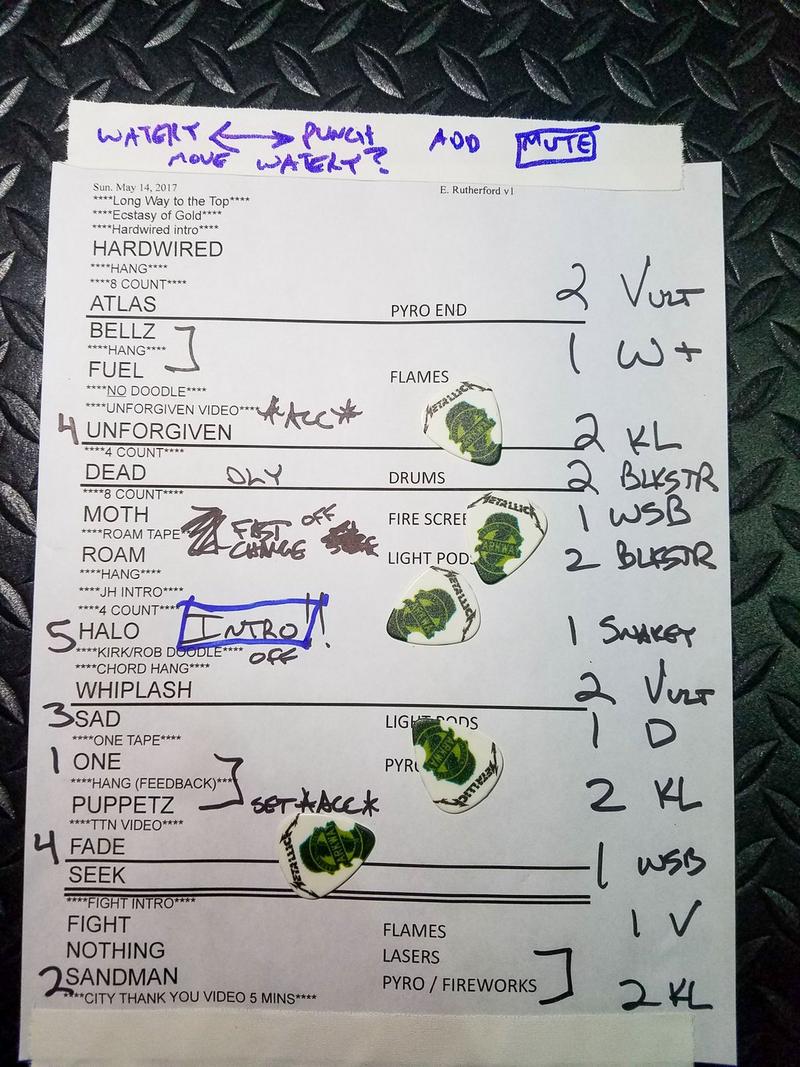 WATERY <--> PUNCH ADD MUTE
MOVE WATERY?
Sun. May 14, 2017 E. Rutherford v1
****Long Way to the Top****
****Ecstasy of Gold****
****Hardwired intro****
HARDWIRED
****HANG****
****8 COUNT****
ATLAS PYRO END 2 VULT
BELLZ
****HANG**** 1 W+
FUEL FLAMES
****NO DOODLE****
****UNFORGIVEN VIDEO**** *ACC*
4 UNFORGIVEN 2 KL
****4 COUNT****
DEAD DLY DRUMS 2 BLKSTR
****8 COUNT****
MOTH OFF FIRE SCREE 1 WSB
****ROAM TAPE FAST CHANGE
ROAM LIGHT PODS 2 BLKSTR
****HANG****
****JH INTRO****
****4 COUNT****
5 HALO INTRO!! 1 SNAKEY
****KIRK/ROB DOODLE**** OFF
****CHORD HANG****
WHIPLASH 2 VULT
3 SAD LIGHT PODS 1 D
****ONE TAPE****
1 ONE PYRO
****HANG (FEEDBACK)****
PUPPETZ SET *ACC* 2 KL
****TTN VIDEO****
4 FADE 1 WSB
SEEK
****FIGHT INTRO****
FIGHT FLAMES 1 V
NOTHING LASERS
2 SANDMAN PYRO / FIREWORKS 2 KL
****CITY THANK YOU VIDEO 5 MINS****
METALLICA
METALLICA
METALLICA
METALLICA
METALLICA